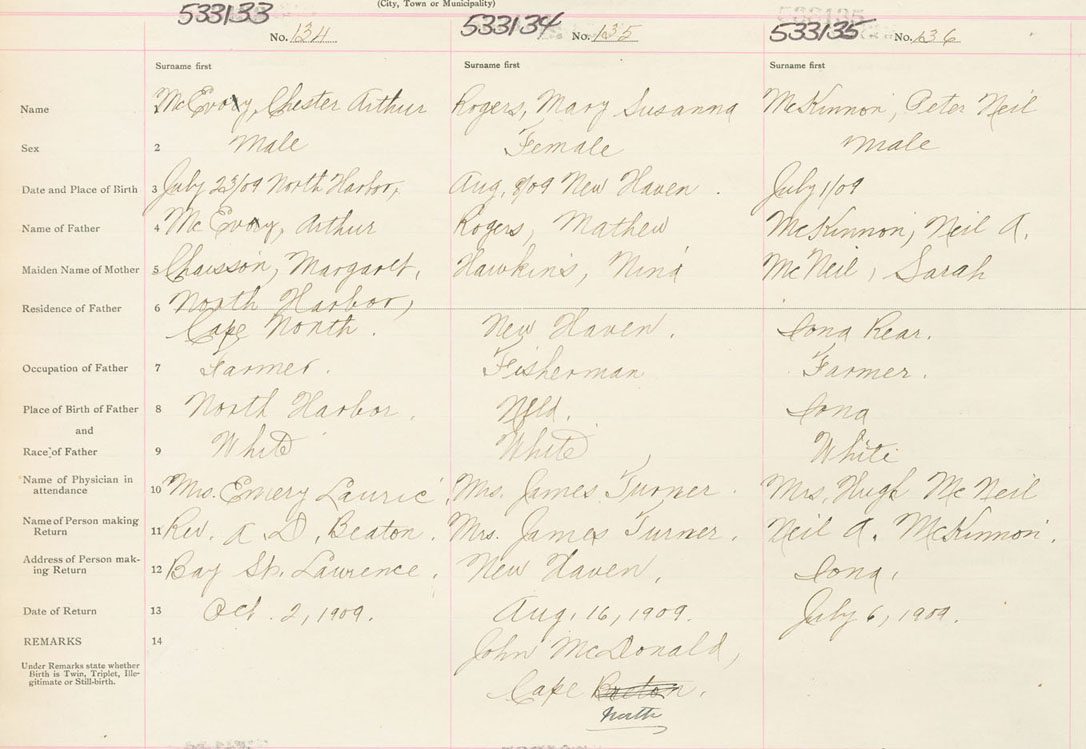 (City, Town or Municipality)
533133 533134 533135
No. 134 No. 135 No. 136
Surname first Surname first Surname first
Name 1 McEvoy, Chester Arthur Rogers, Mary Susanna McKinnon, Peter Neil
Sex 2 Male Female Male
Date and Place of Birth 3 July 23/09 North Harbor, Aug, 8/09 New Haven. July 1/09
Name of Father 4 McEvoy, Arthur Rogers, Mathew McKinnon, Neil A.
Maiden Name of Mother 5 Chaisson, Margaret, Hawkins, Nina McNeil, Sarah
Residence of Father 6 North Harbor,
Cape North. New Haven. Iona Rear.
Occupation of Father 7 Farmer. Fisherman Farmer.
Place of Birth of Father 8 North Harbor. Nfld. Iona
and
Race of Father 9 White White White
Name of Physician in
attendance 10 Mrs. Emery Mrs. James Turner. Mrs. Hugh McNeil
Name of Person making
Return 11 Rev. A. D. Beaton. Mrs. James Turner. Neil A. McKinnon.
Address of Person mak-
ing Return 12 Bay St. Lawrence. New Haven. Iona.
Date of Return 13 Oct. 2, 1909. Aug. 16, 1909. July 6, 1909.
REMARKS 14 John McDonald,
Under Remarks state whether
Birth is Twin, Triplet, Ille-
gitimate or Still-birth.
Cape Breton.
North